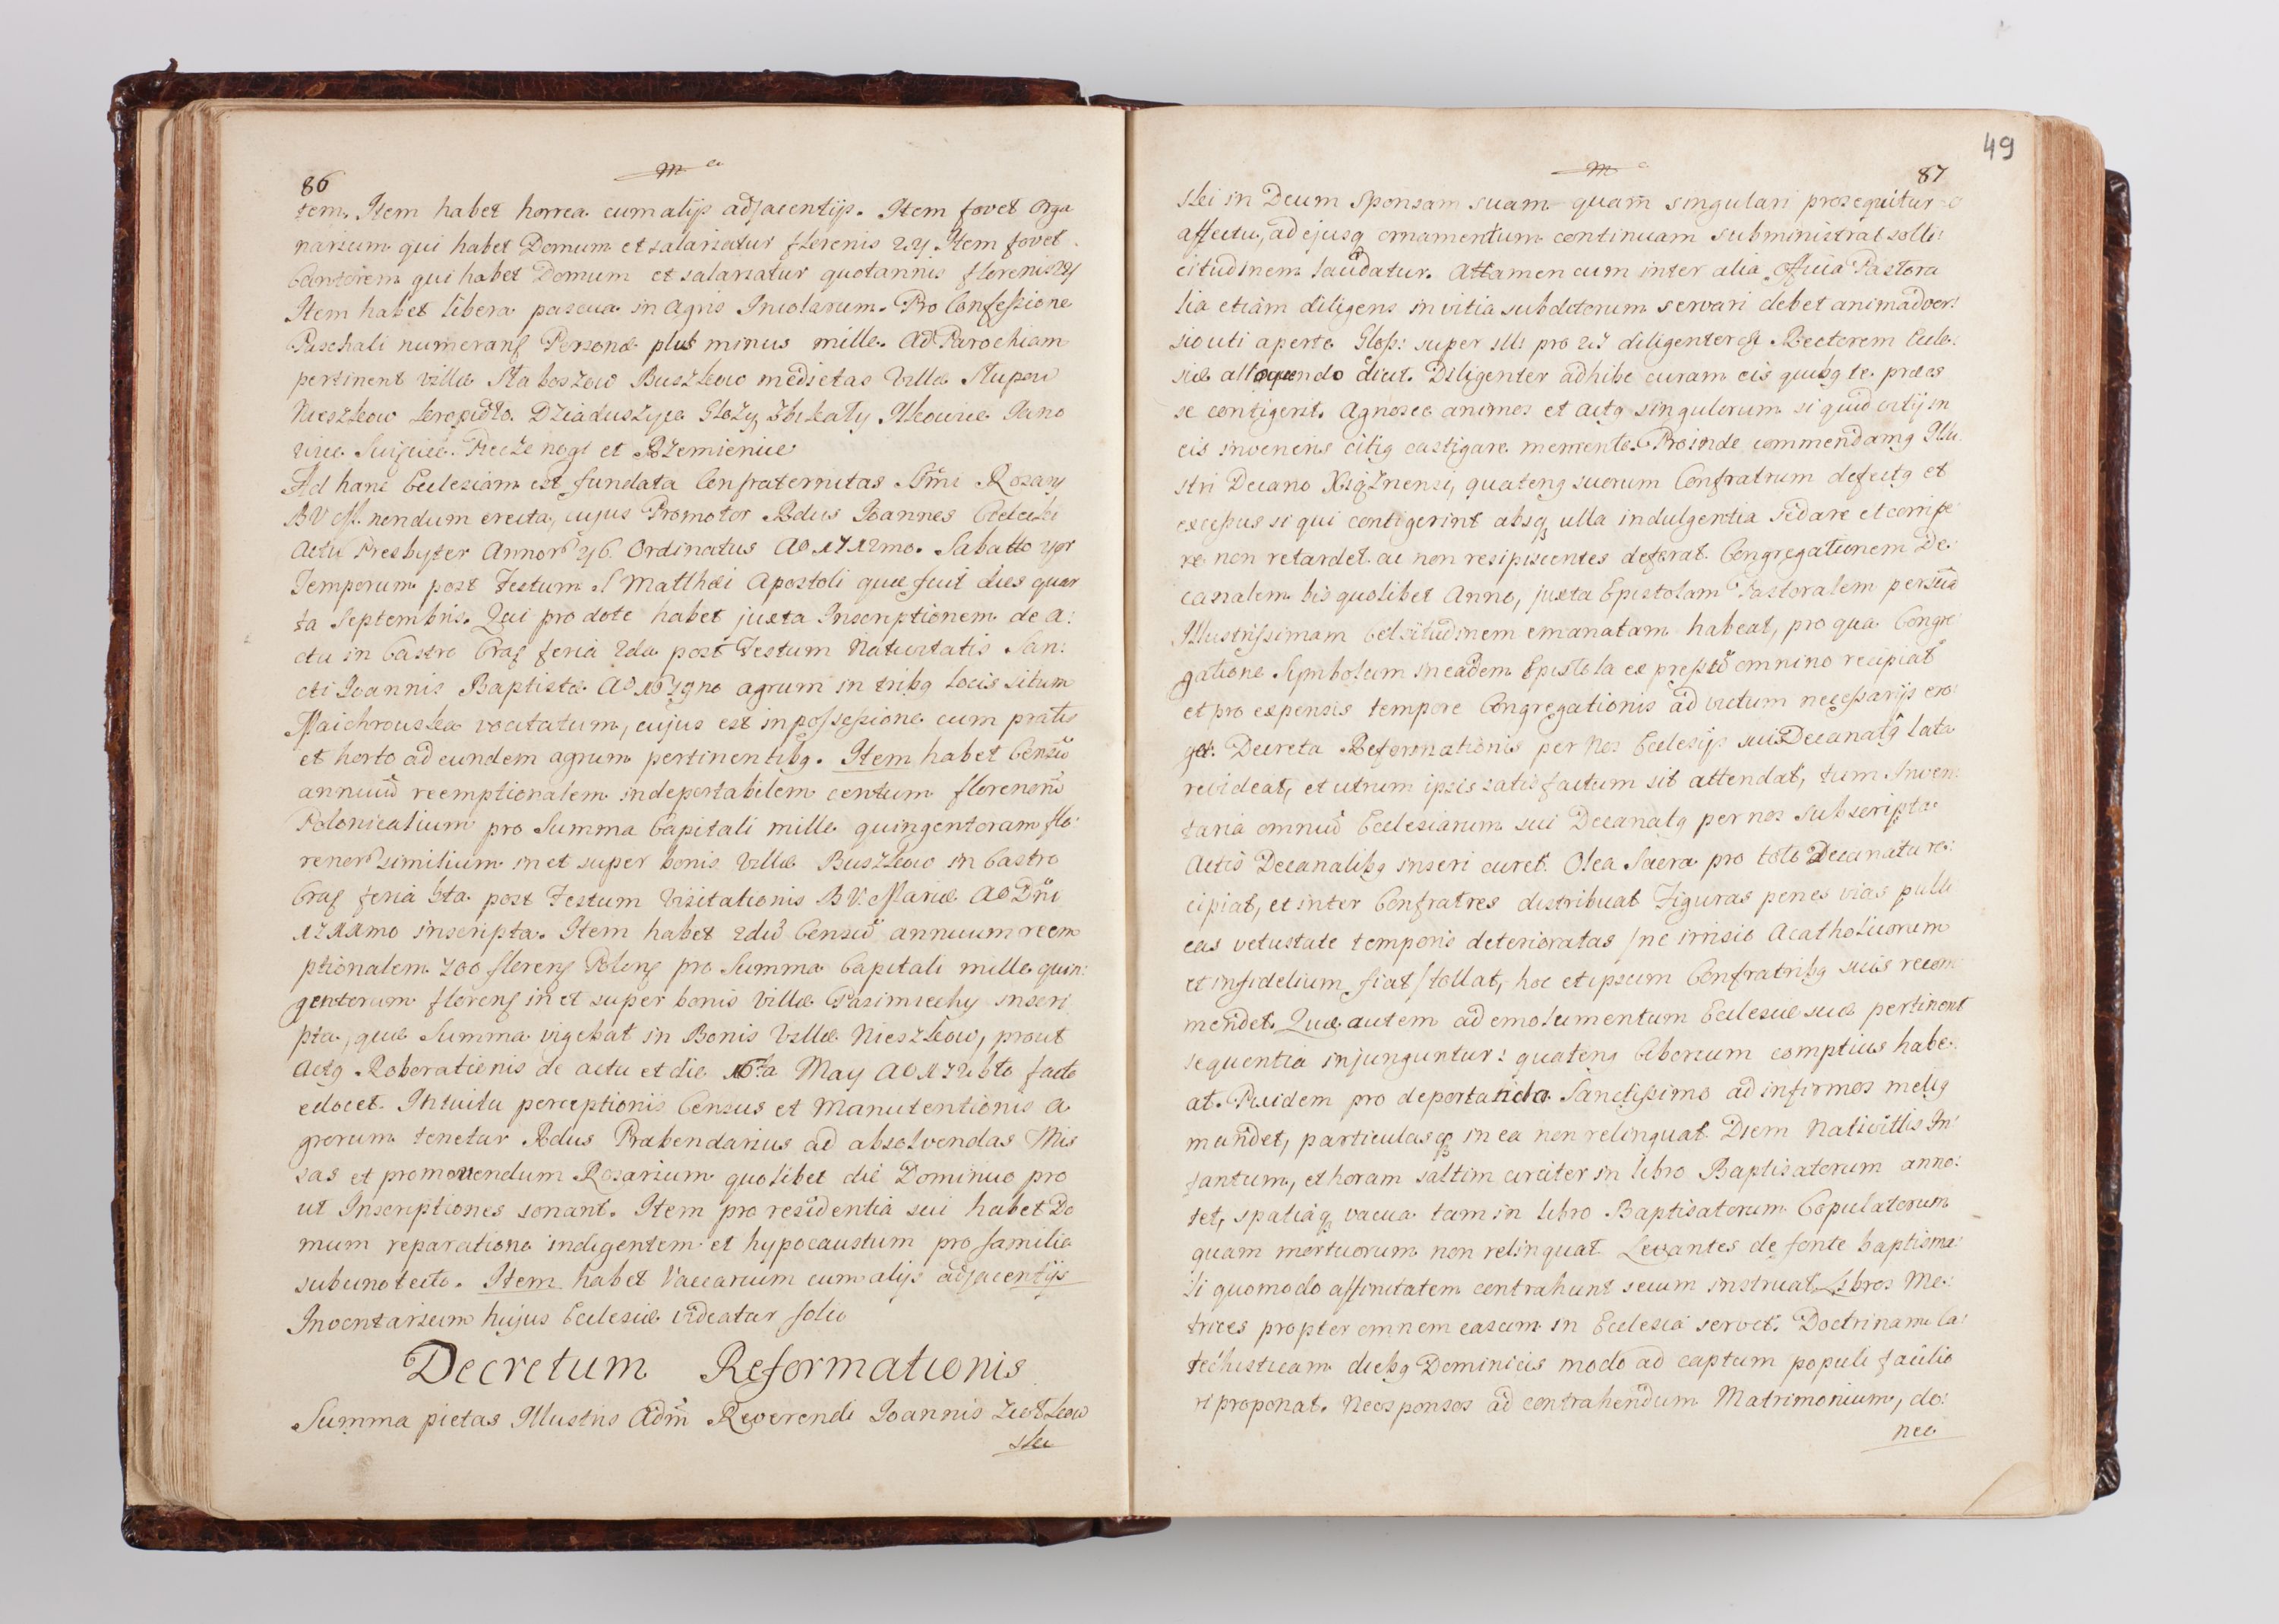 86
tem. Item habet horrea cum alijs adjacentijs. Item fovet Orga
narium qui habet Domum et salariatur florenis 24. Item fovet
Cantorem qui habet Domum et salariatur quotannis florenis 24
Item habet libera pascua in agris Incolarum. Pro Confessione
Paschali numerans Personæ plus minus mille. Ad Parochiam
pertinent villæ Słaboszow Buszkow medietas Villæ Słupow
Nieszkow Dziaduszyce Zbikały Ilkowice Jano
wice et Rzemienice
Ad hanc Ecclesiam est fundata Confraternitas Rosary
BV nondum erecta, cujus Promotor Rdus Joannes
Actu Presbyter Annorum 46. Ordinatus Ao 1712mo. Sabatto 4or
Temporum post Festum S Matthæi Apostoli quæ fuit dies quar
ta Septembris. Qui pro dote habet juxta Inscriptionem de a:
ctu in Castro Crac feria 2da post Festum Nativitatis San:
cti Joannis Baptistæ Ao agrum in tribq locis situm
vocitatum, cujus est in possessione cum pratis
et horto ad eundem agrum pertinentibq. Item habet Censũ
annuũ reemptionalem indeportabilem centum florenorũ
Polonicalium pro Summa Capitali mille quingentorum flo
renor similium in et super bonis Villæ Buszkow in Castro
Crac feria 6ta post Festum Visitationis BV Mariæ Ao Dni
1711mo inscripta. Item habet 2dũ Censũ annuum reem
ptionalem 100 florens Polons pro Summa Capitali mille quin:
gentorum florens in et super bonis Villæ Pasimiechy inscri
pta, quæ Summa vigebat in Bonis Villæ Nieszkow, prout
Actq Roborationis de actu et die 16ta May Ao 1726to facto
edocet. Intuitu perceptionis Census et Manutentionis a
grorum tenetur Rdus Præbendarius ad absolvendas Mis
sas et promovendum Rosarium quolibet die Dominico pro
ut Inscriptiones sonant. Item pro residentia sui habet Do
mum reparatione indigentem et hypocaustum pro familia
sub uno tecto. Item habet Vaccarium cum alijs adjacentijs
Inventarium hujus Ecclesiæ videatur folio
Decretum Reformationis
Summa pietas Illustris Adm Reverendi Joannis
ski
49
87
ski in Deum Sponsam suam quam singulari prosequitur
affectu, ad ejusq ornamentum continuam subministrat solli:
citudinem laudatur. Attamen cum inter alia Officia Pastora
lia etiam diligens in vitia subditorum servari debet animadver:
sio uti aperte Gloss: super pro diligenter Rectorem Eccle:
siæ alloquendo dicit. Diligenter adhibe curam eis quibq te præes
se contigerit. Agnosce animos et actq singulorum si quid vitij in
eis inveneris citiq castigare memento. Proinde commendamq Illu
stri Decano Xiążnensi, quatenq suorum Confratrum defectq et
excessus si qui contigerint absq ulla indulgentia sedare et corripe
re non retardet ac non resipiscentes deferat. Congregationem De:
canalem bis quolibet Anno, juxta Epistolam Pastoralem per suã
Illustrissimam Celsitudinem emanatam habeat, pro qua Congre
gatione Symbolum in eadem Epistola expressũ omnino recipiat
et pro expensis tempore Congregationis ad victum necessarijs ero
get. Decreta Reformationis per Nos Ecclesijs sui Decanatq lata
revideat, et utrum ipsis satisfactum sit attendat, tum Inven
taria omniũ Ecclesiarum sui Decanatq per nos Subscripta
Actis Decanalibq inseri curet. Olea Sacra pro toto Decanatu re:
cipiat, et inter Confratres distribuat Figuras penes vias publi
cas vetustate temporis deterioratas /ne irrisio Acatholicorum
et infidelium fiat/ tollat, hoc et ipsum Confratribq suis recom
mendet. Quæ autem ad emolumentum Ecclesiæ suæ pertinent
sequentia injunguntur: quatenq Ciborium comptius habe:
at. Puxidem pro deportando Sanctissimo ad infirmos meliq
mundet, particulasq in ea non relinquat. Diem Nativittis In:
fantum, et horam saltim circiter in libro Baptisatorum anno:
tet, spatiaq vacua tam in libro Baptisatorum Copulatorum
quam mortuorum non relinquat Levantes de fonte baptisma:
li quomodo affinitatem contrahunt secum instruat Libros Me:
trices propter omnem casum in Ecclesia servet. Doctrinam Ca:
techisticam diebq Dominicis modo ad captum populi facilio
ri proponat. Neosponsos ad contrahendum Matrimonium, do:
nec